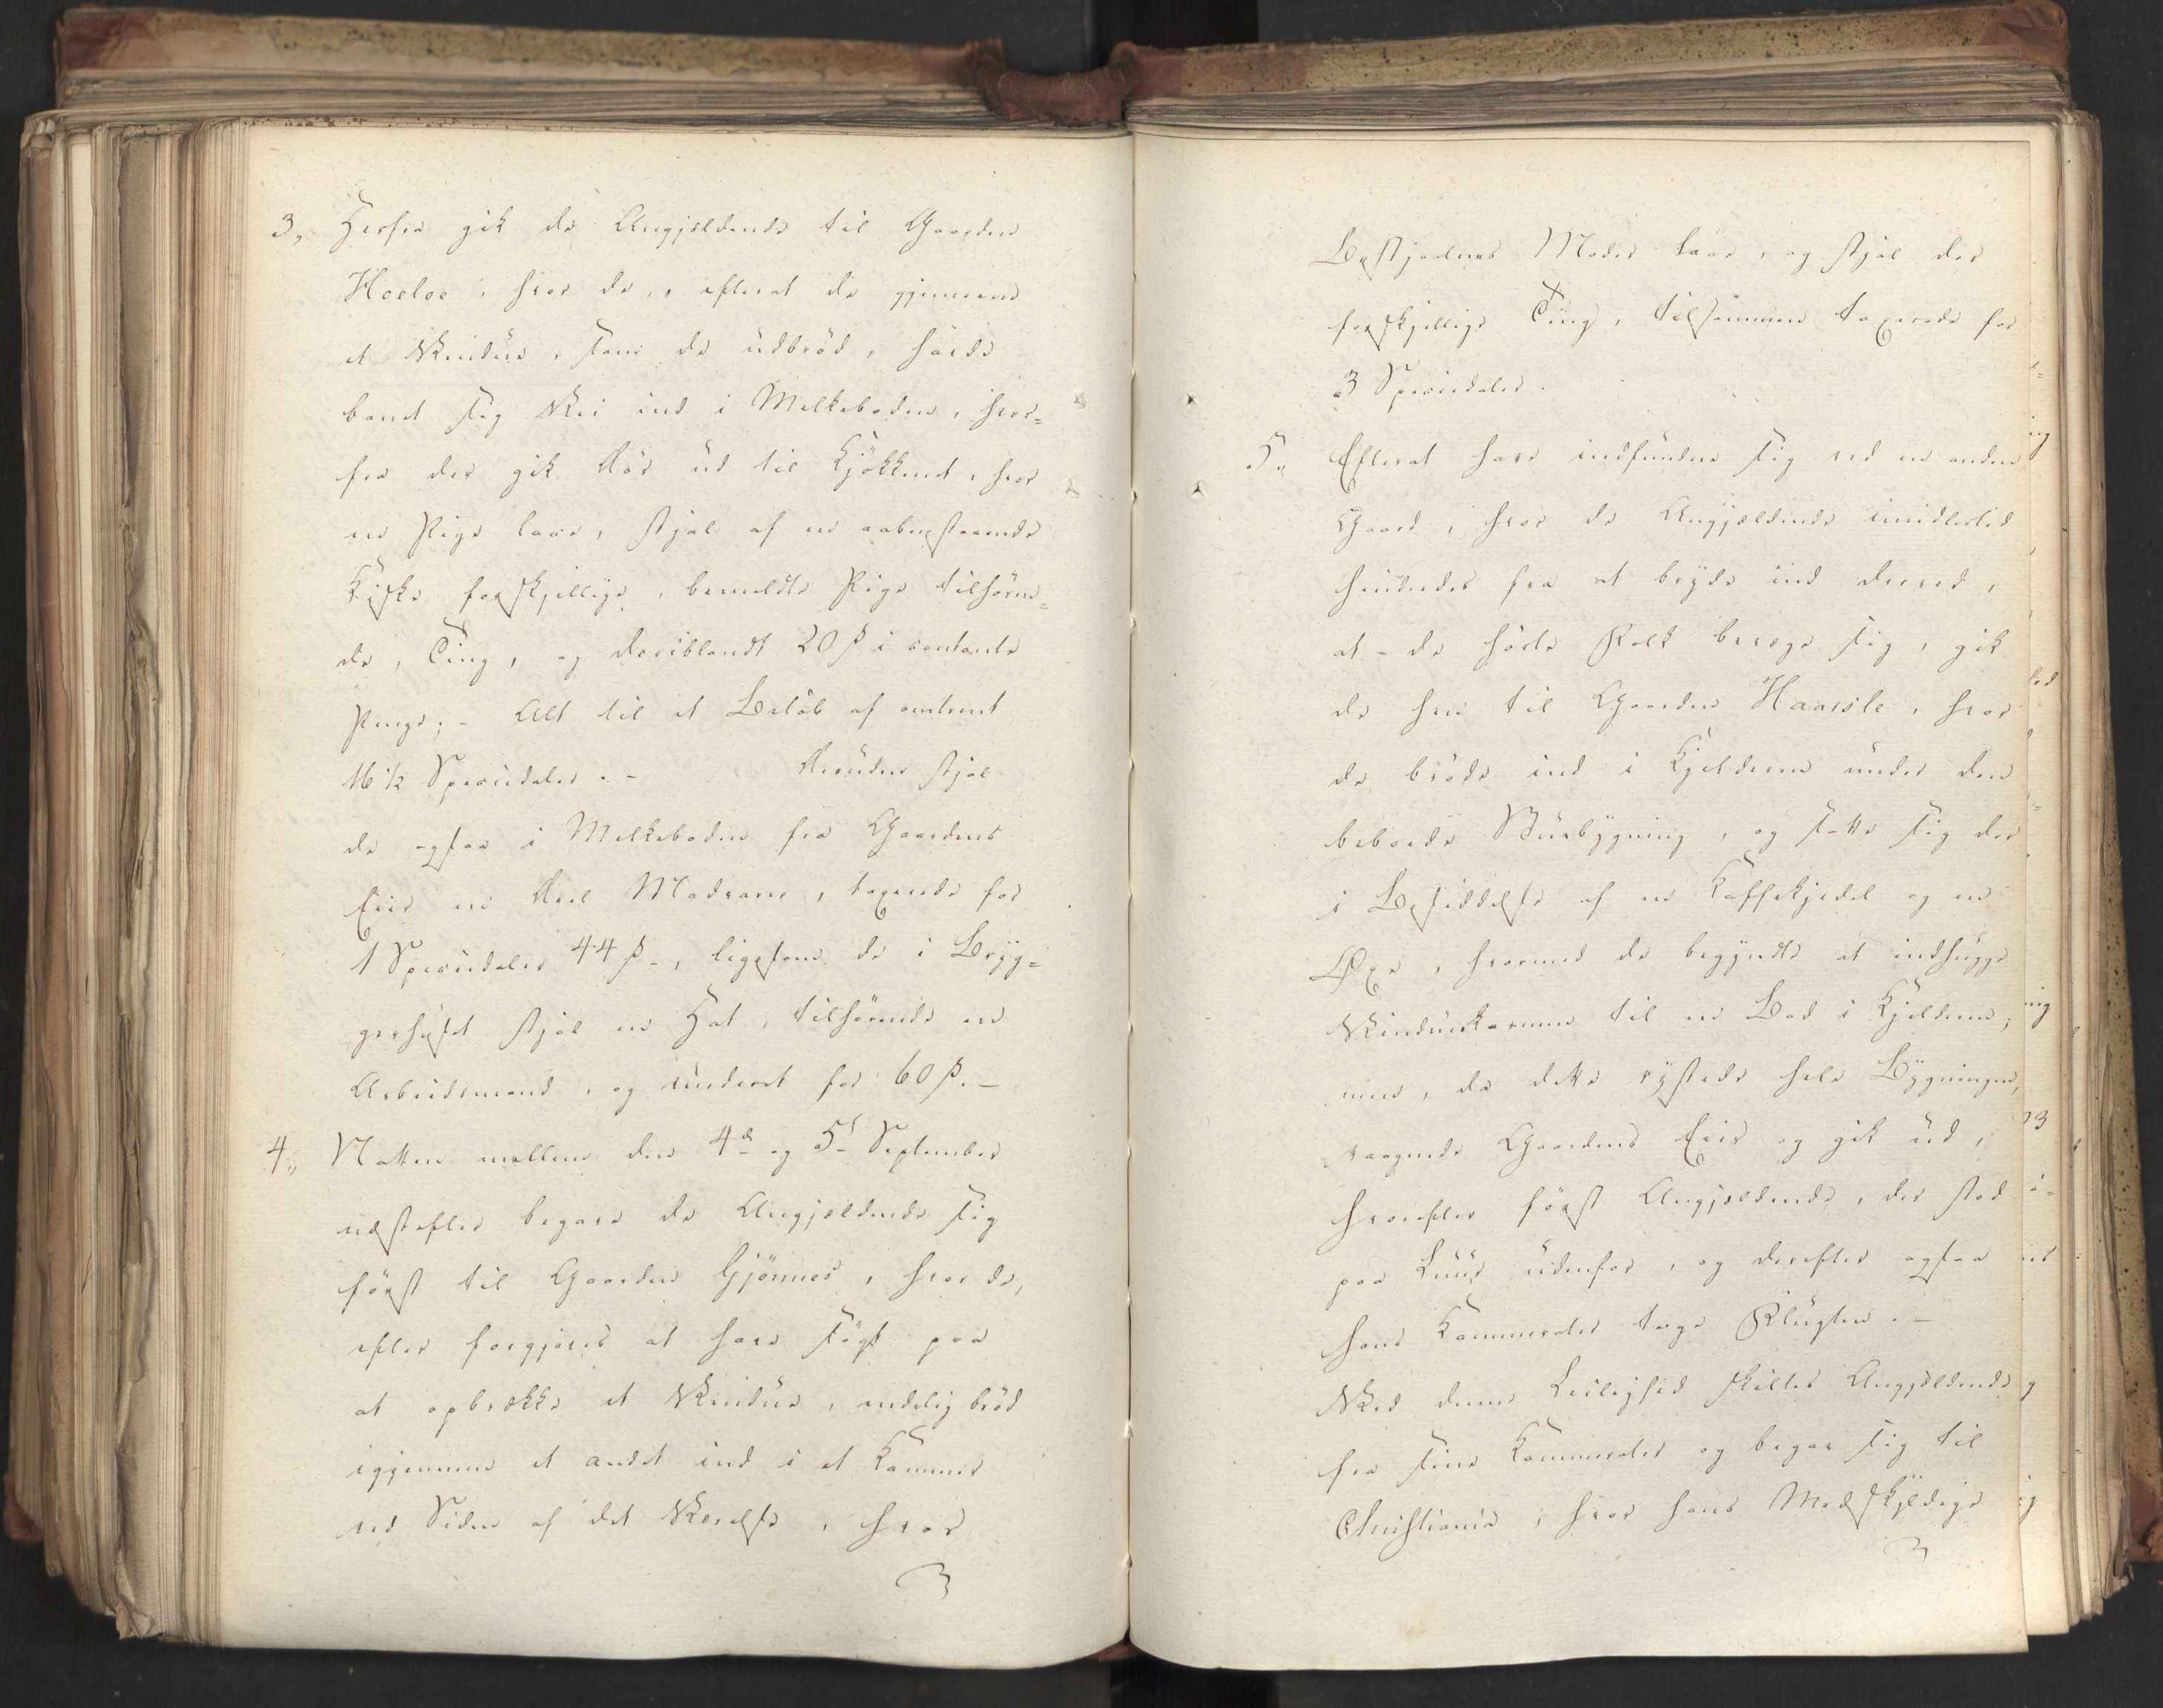 3, Herfra gik de Angjældende til Gaarden
Hoeloe, hvor de, efterat de gjennem
et Vindue, som de udbröd, havde
banet sig Vei ind i Melkeboden, hvor=
fra der gik Dör ud til Kjökkenet, hvor
en Pige laae, stjal af en aabenstaaende
Kiste forskjellige, bemeldte Pige tilhören=
de, Ting, og deriblandt 20 ß i contante
Penge; - Alt til et Belöb af omtrent
16 1/2 Speciedaler. - Desuden stjal
de ogsaa i Melkeboden fra Gaardens
Eier en Deel Madvare, taxerede for
1 Speciedaler 44 ß -, ligesom de i Bryg=
gerhuset stjal en Hat, tilhörende en
Arbeidsmand, og vurderet for 60 ß. -
4, Natten mellem den 4de og 5te September
næstefter begave de Angjældende sig
först til Gaarden Gjönnes, hvor de,
efter forgjæves at have sögt paa
at opbrække et Vindue, endelig bröd
igjennem et andet ind i et Kammer
ved Siden af det Værelse, hvor
Bestjaalnes Moder laae, og stjal der
forskjellige Ting, tilsammen taxerede for
3 Speciedaler.
5, Efterat have indfunden sig ved en anden
Gaard, hvor de Angjældende imidlertid
hindredes fra at bryde ind derved,
at de hörte Folk bevæge sig, gik
de hen til Gaarden Haavsle, hvor
de bröde ind i Kjelderen under den
beboede Vaaningsbygning, og satte sig der
i Besiddelse af en Kaffekjedel og en
Öxe, hvormed de begyndte at indhugge
Vindueskarmen til en Bod i Kjelderen;
men, da dette rystede hele Bygningen,
vaagnede Gaardens Eier og gik ud,
hvorefter först Angjældende, der stod
paa Luur udenfor, og derefter ogsaa
hans Kammerater toge Flugten. -
Ved denne Leilighed skiltes Angjældende
fra sine Kammerater og begav sig til
Christiania, hvor hans Medskyldige